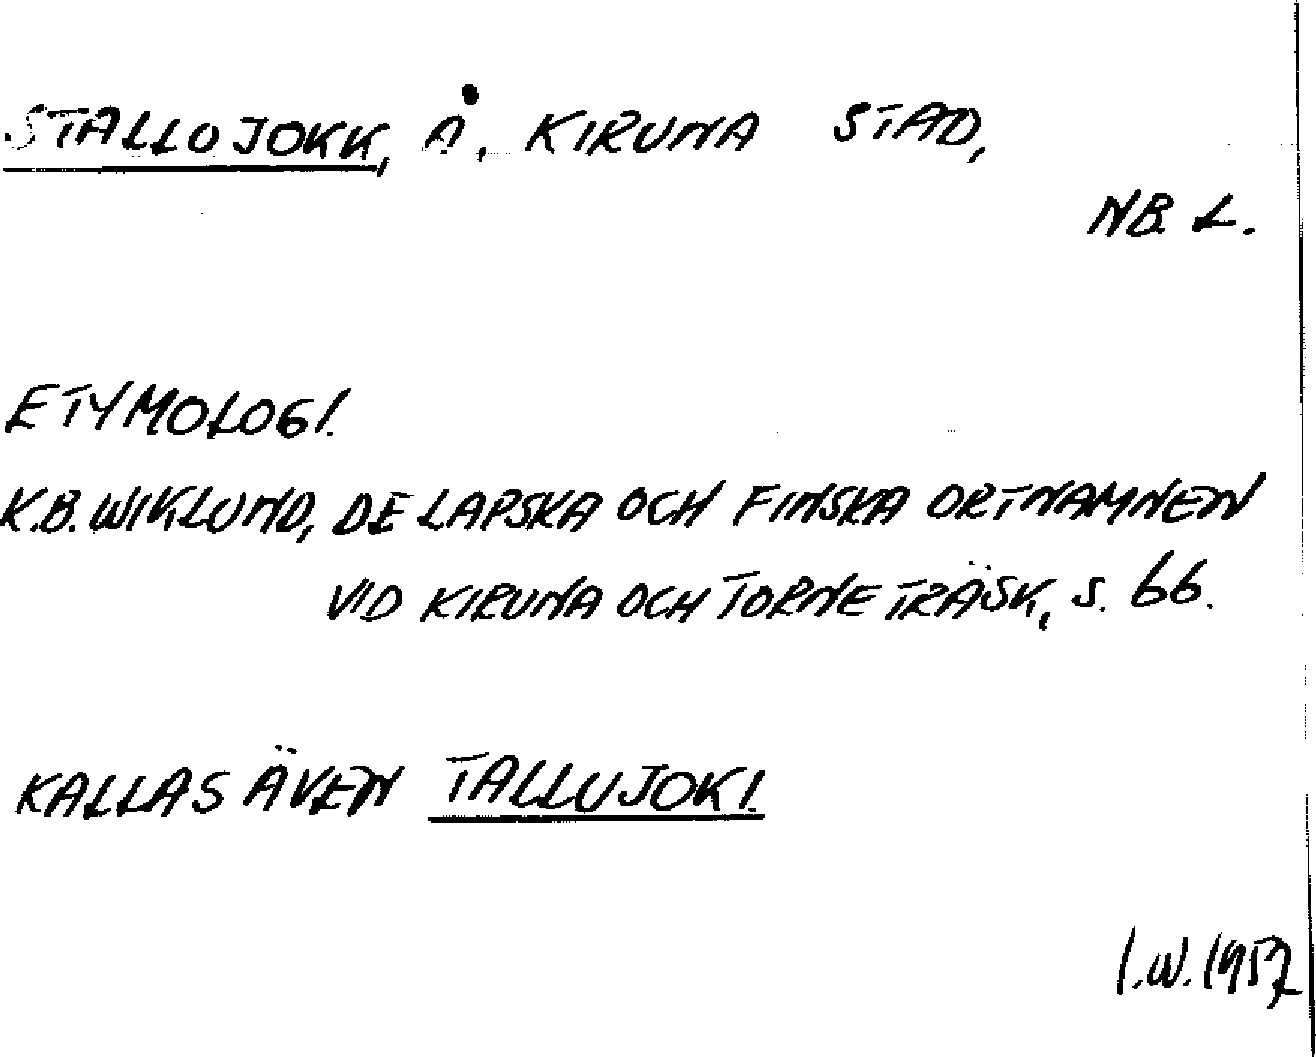 STALLOJOKK, Å, KIRUNA STAD,
NB. L.
ETYMOLOGI.
K.B. WIKLUND, DE LAPSKA OCH FINSKA ORTNAMNEN
VID KIRUNA OCH TORNE TRÄSK, S. 66.
KALLAS ÄVEN TALLUJOKI.
I.W. 1957